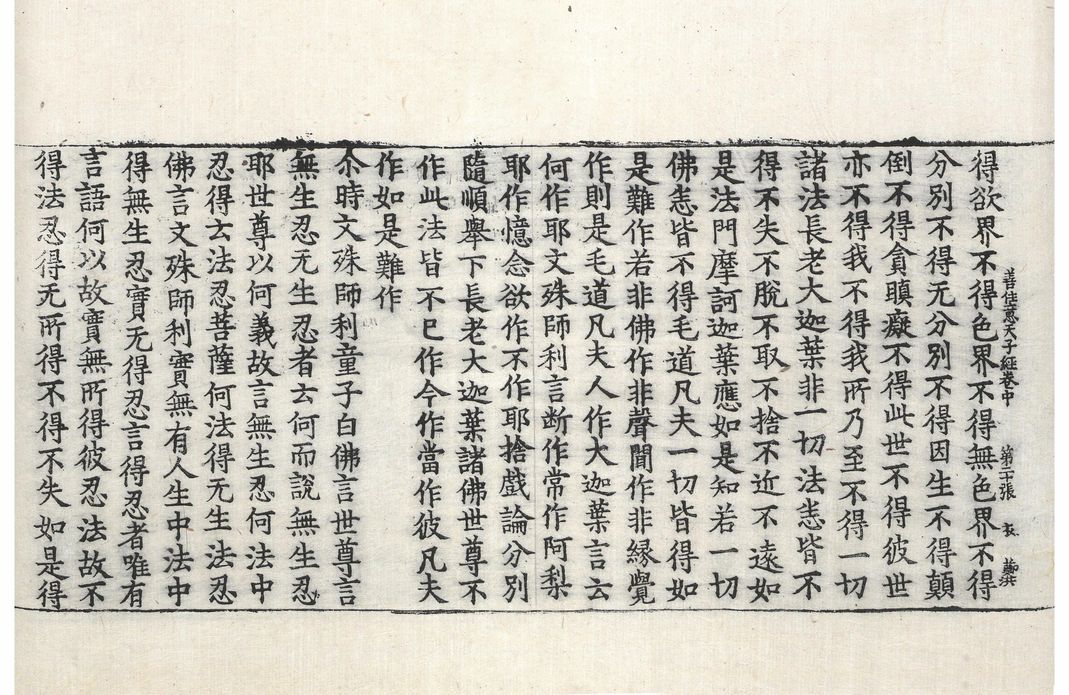 善住意天子經卷中 第二十張 衣
得欲界不得色界不得無色界不得
分別不得无分別不得因生不得顛
倒不得貪瞋癡不得此世不得彼世
亦不得我不得我所乃至不得一切
諸法長老大迦葉非一切法悉皆不
得不失不脫不取不捨不近不遠如
是法門摩訶迦葉應如是知若一切
佛悉皆不得毛道凡夫一切皆得如
是難作若非佛作非聲聞作非縁覺
作則是毛道凡夫人作大迦葉言云
何作耶文殊師利言断作常作阿梨
耶作憶念欲作不作耶捨戲論分別
隨順舉下長老大迦葉諸佛世尊不
作此法皆不已作今作當作彼凡夫
作如是難作
尒時文殊師利童子白佛言世尊言
無生忍无生忍者云何而說無生忍
耶世尊以何義故言無生忍何法中
忍得云法忍菩薩何法得无生法忍
佛言文殊師利實無有人生中法中
得無生忍實无得忍言得忍者唯有
言語何以故實無所得彼忍法故不
得法忍得无所得不得不失如是得